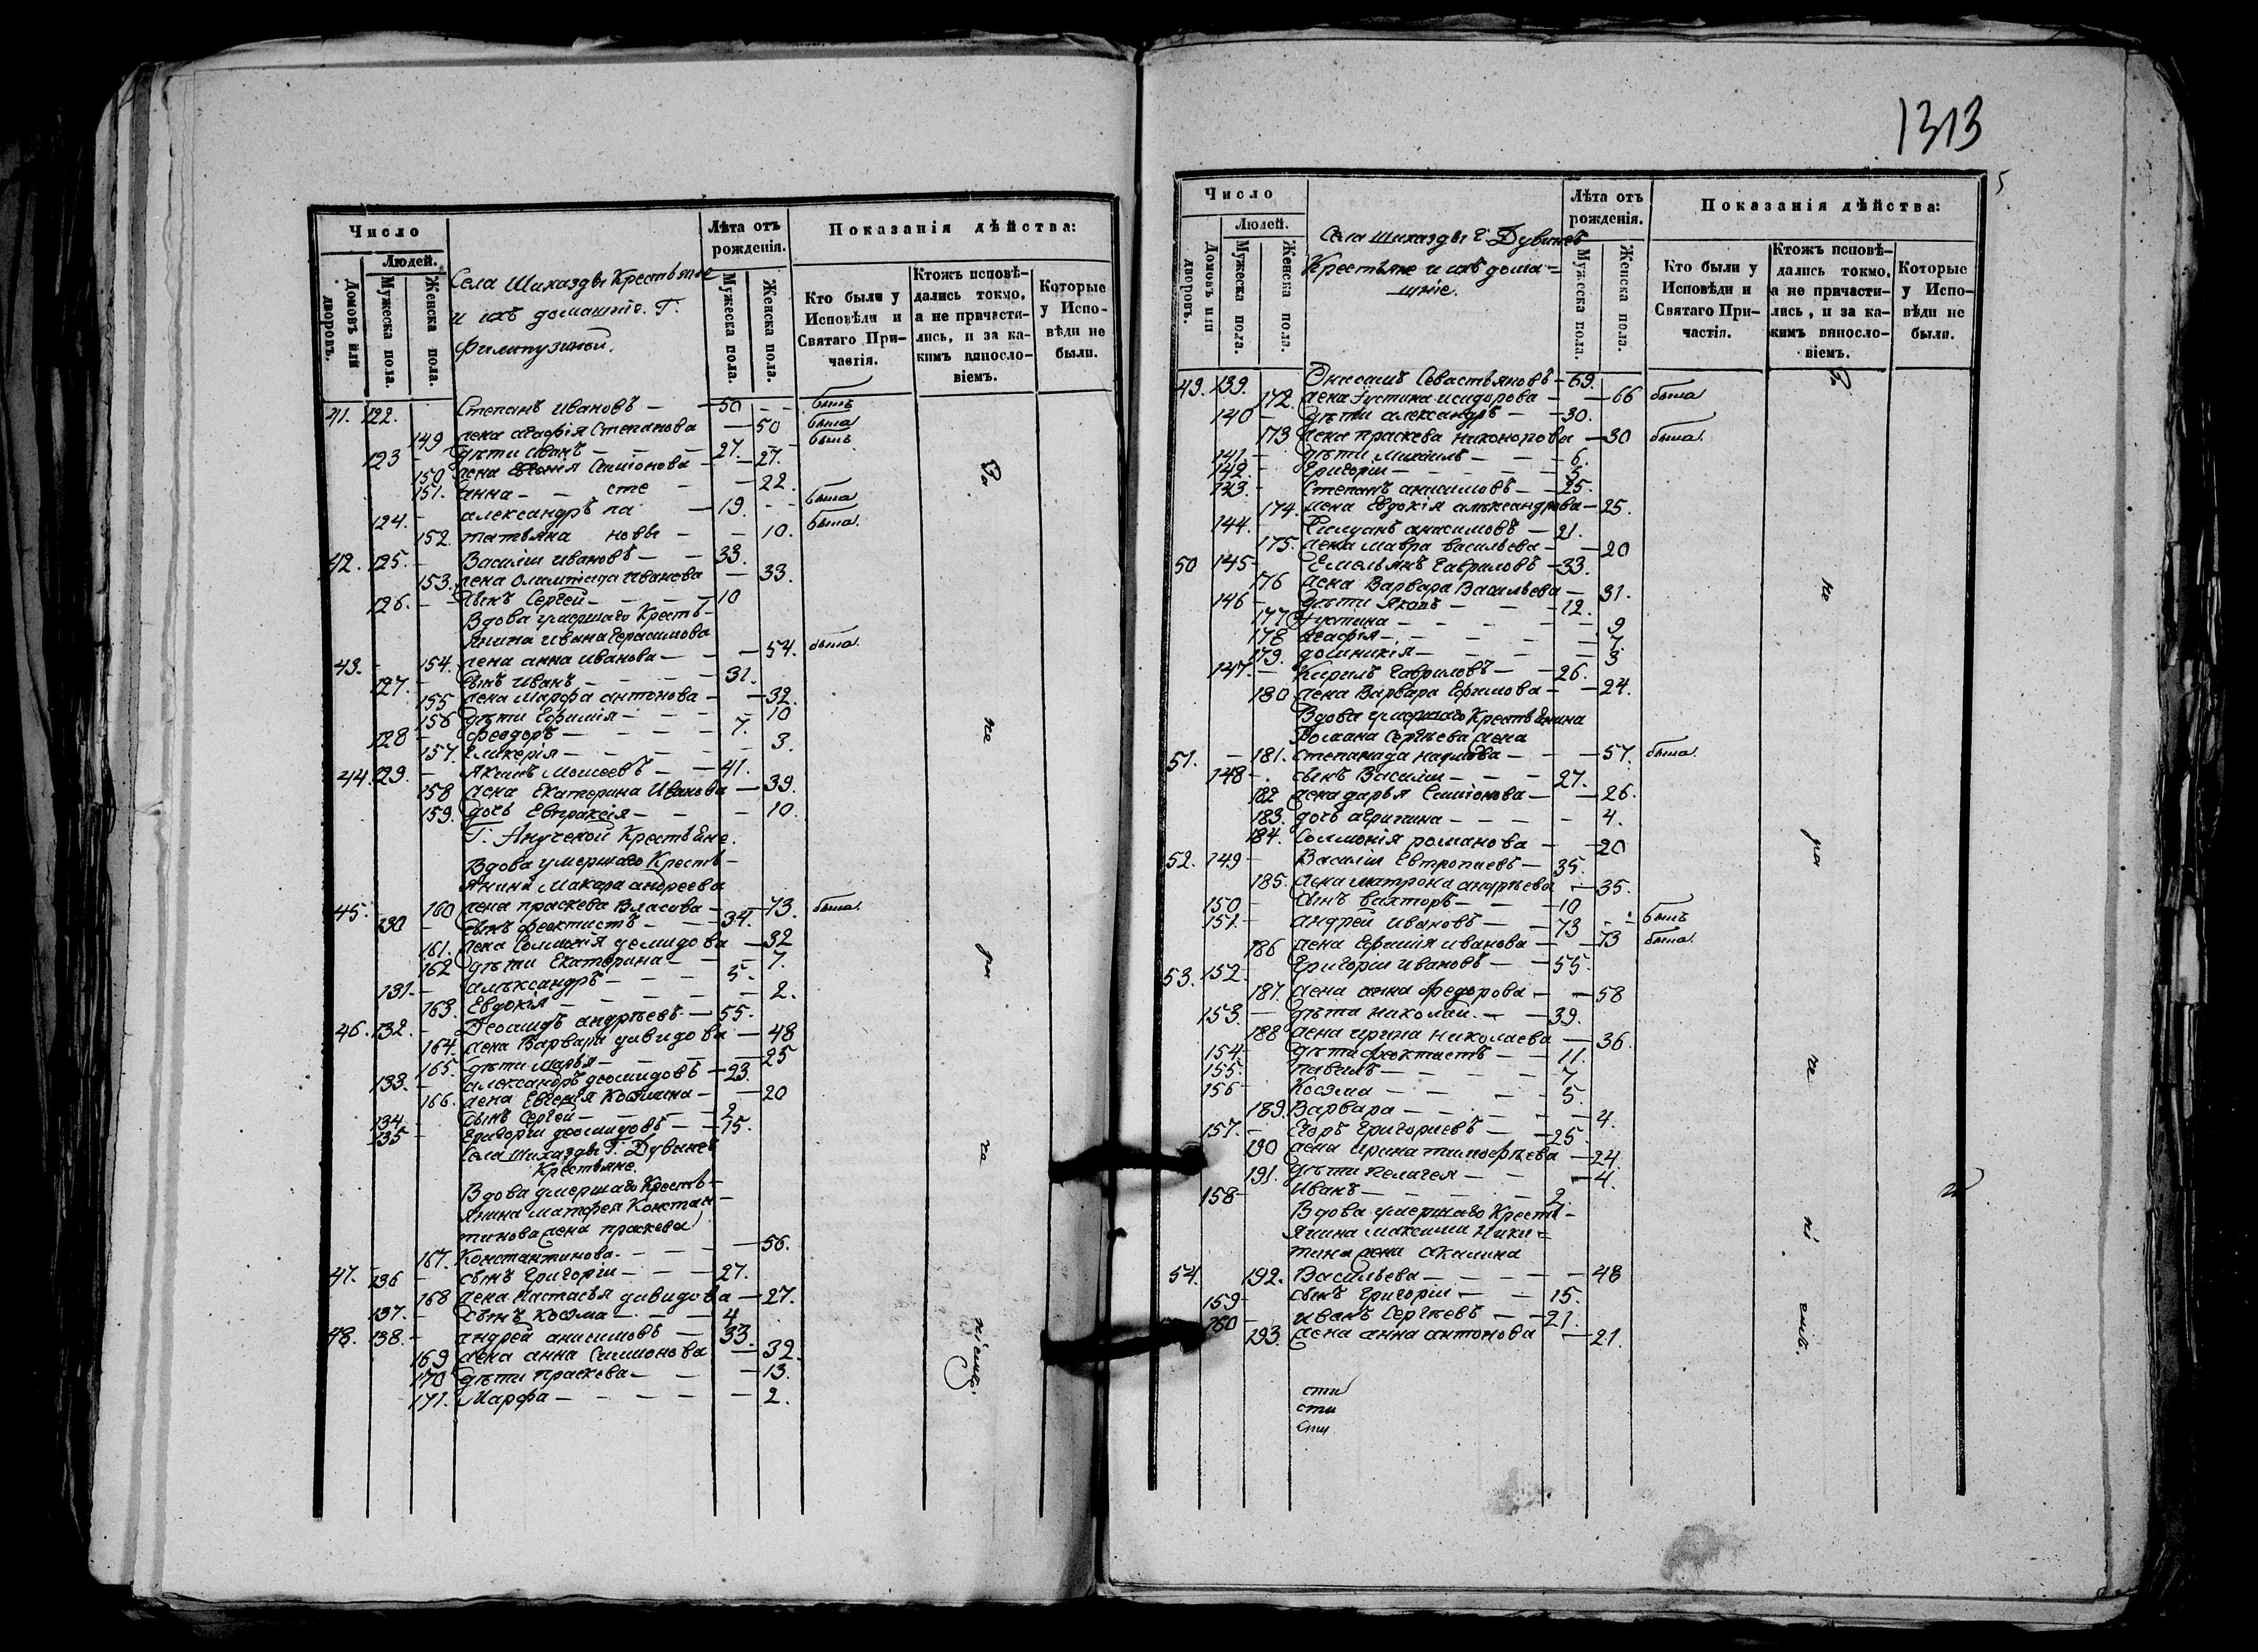 Число
Людей.
Домовъ или дворовъ.
Мужеска пола.
Женска пола.
Села Шихазды Крестьяне
и ихъ домашніе. Г.
Филипузиной.
Лѣта отъ рожденія.
Мужеска пола.
Женска пола.
Показанія дѣйства:
Кто были у Исповѣди и Святаго Причастія.
Ктожъ исповѣдались токмо, а не причастились, и за какимъ винословіемъ.
Которые у Исповѣди не были.
41. 122. Степанъ Ивановъ — 50 былъ
149 жена Агафія Степанова — 50 была
123 дѣти Иванъ — 27. былъ
150 жена Евгенія Симіонова — 27.
151. Анна — сте — 22.
124. Александръ па — 19. была
152. Татьяна новы — 10. была.
42. 125. Василіи Ивановъ — 33.
153. жена Олимпіада Иванова — 33.
126. сынъ Сергей — 10
Вдова умершаго Кресть-
янина Ивана Герасимова
43. 154. жена Анна Иванова — 54. была.
127. сынъ Иванъ — 31.
155 жена Марфа Антонова — 32.
156 дѣти Ефимія — 10
128 Феодоръ — 7.
157. Гликерія — 3.
44. 129. Якимъ Моисеевъ — 41.
158 жена Екатерина Иванова — 39.
159. дочь Евпраксія — 10.
Г. Анучекой Крестьяне.
Вдова умершаго Кресть-
янина Макара Андреева
45. 160 жена Праскева Власова — 73. была.
130 сынъ Феоктистъ — 34.
161. жена Соломонія Демидова — 32
162 дѣти Екатерина — 7.
131. Александръ — 5.
163. Евдокія — 2.
46. 132. Деомидъ Андреевъ — 55.
164. жена Варвара Давидова — 48
165. дѣти Марья — 25
133. Александръ Деомидовъ — 23.
166. жена Евгенія Козмина — 20
134. сынъ Сергей — 2
135 Григоріи Деомидовъ — 15.
Села Шихазды Г. Дувинеѣ
Крестьяне.
Вдова умершаго Кресть-
янина Матфея Констан-
тинова жена Праскева
167. Константинова. — 56.
47. 136 сынъ Григоріи — 27.
168 жена Настасья Давидова — 27.
137. сынъ Козма — 4
48. 138. Андрей Анисимовъ — 33.
169 жена Анна Симионова — 32.
170 дѣти Праскева — 13.
171. Марфа — 2.
За не ра че ніемъ.
1313
5
Число
Людей.
Домовъ или дворовъ.
Мужеска пола.
Женска пола.
Села Шихазды Г. Дувинеѣ
Крестьяне и ихъ дома=
шніе.
Лѣта отъ рожденія.
Мужеска пола.
Женска пола.
Показанія дѣйства:
Кто были у Исповѣди и Святаго Причастія.
Ктожъ исповѣдались токмо, а не причастились, и за какимъ винословіемъ.
Которые у Исповѣди не были.
49. 139. Онисимъ Севастьяновъ — 69.
172. жена Іустина Исидорова — 66 была
140 дѣти Александръ — 30.
173 жена Праскева Никонорова — 30 была.
141. дѣти Михаилъ — 6.
142. Григоріи — 3.
143. Степанъ Анисимовъ — 25.
174. жена Евдокія Александрова — 25.
144. Силуанъ Анисимовъ — 21.
175. жена Мавра Васильева — 20
50 145 Емельянъ Гавриловъ — 33.
176 жена Варвара Васильева — 31.
146 дѣти Яковъ — 12.
177 Іустина — 9
178 Агафія — 7.
179. Доминикія — 3
147. Кирилъ Гавриловъ — 26.
180 жена Варвара Ефимова — 24.
Вдова умершаго Крестьянина
Романа Сергѣева жена
51. 181. Степанида Наумова — 57. была.
148 сынъ Василіи — 27.
182 жена Дарья Симіонова — 26.
183. дочь Агрипина — 4.
184. Соломонія Романова — 20
52. 149 Василіи Евтропиевъ — 35.
185. жена Матрона Андреева — 35.
150 сынъ Викторъ — 10
151. Андрей Ивановъ — 73 былъ
186 жена Ефимія Иванова — 73 была.
53. 152 Григоріи Ивановъ — 55.
187. жена Анна Федорова — 58
153. дѣти Николай — 39.
188 жена Ирина Николаева — 36.
154 дѣти Феоктистъ — 11.
155. Павилъ — 7
156 Козма — 5.
189. Варвара — 4.
157. Егоръ Григориевъ — 25.
190 жена Ирина Тимофѣева — 24.
191. дѣти Пелагея — 4.
158 Иванъ — 2.
Вдова умершаго Кресть-
янина Максима Ники=
тина жена Акилина
54. 192. Васильева — 48
159 сынъ Григоріи — 15.
160 Иванъ Сергѣевъ — 21.
193. жена Анна Антонова — 21.
сти
сти
сти
За не ра че ні емъ.